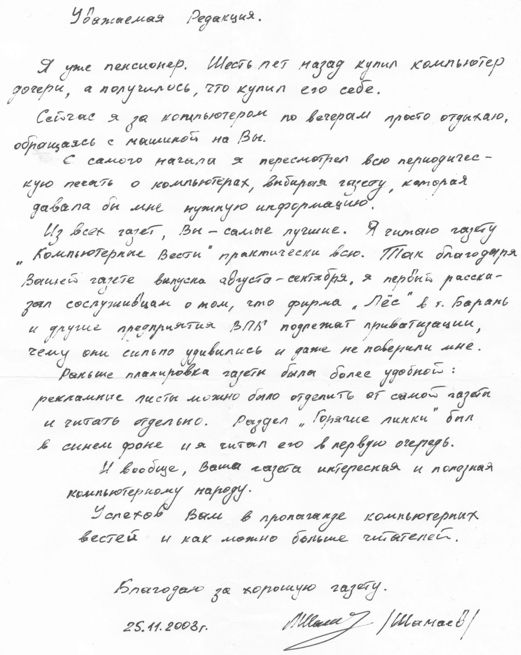 Уважаемая Редакция.
Я уже пенсионер. Шесть лет назад купил компьютер
дочери, а получилось, что купил его себе.
Сейчас я за компьютером по вечерам просто отдыхаю,
обращаясь с машиной на Вы.
С самого начала я пересмотрел всю периодичес-
кую печать о компьютерах, выбирая газету, которая
давала бы мне нужную информацию.
Из всех газет, Вы – самые лучшие. Я читаю газету
„Компьютерные Вести" практически всю. Так благодаря
Вашей газете выпуска августа – сентября, я первый расска-
зал сослуживцам о том, что фирма „Лёс" в г. Барань
и другие предприятия ВПК подлежат приватизации,
чему они сильно удивились и даже не поверили мне.
Раньше планировка газеты была более удобной:
рекламные листы можно было отделить от самой газеты
и читать отдельно. Раздел „Горячие линки" был
в синем фоне и я читал его в первую очередь.
И вообще, Ваша газета интересная и полезная
компьютерному народу.
Успехов Вам в пропаганде компьютерных
вестей и как можно больше читателей.
Благодарю за хорошую газету.
25.11.2003г. /Шамаев/